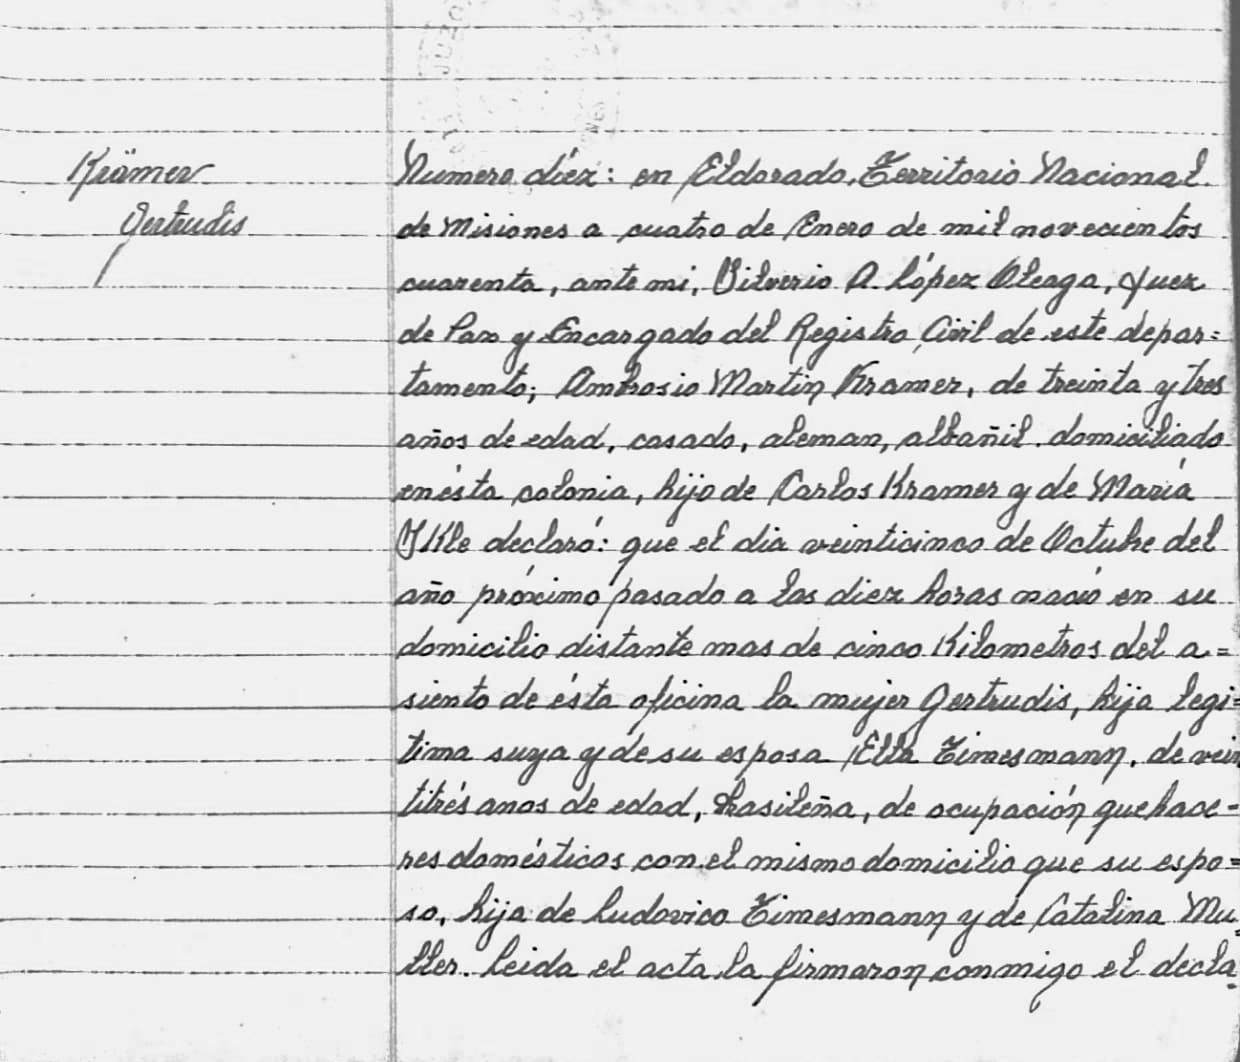 Krämer
Gertrudis
Numero diéz: en Eldorado, Territorio Nacional
de Misiones a cuatro de Enero de mil novecientos
cuarenta, ante mi, Silverio A. López Oleaga, Juez
de Paz y Encargado del Registro Civil de este depar=
tamento; Ambrosio Martin Kramer, de treinta y tres
años de edad, casado, aleman, albañil, domiciliado
en ésta colonia, hijo de Carlos Kramer y de María
Ikle declaró: que el dia veinticinco de Octubre del
año próximo pasado a las diez horas nació en su
domicilio distante mas de cinco Kilometros del a=
siento de ésta oficina la mujer Gertrudis, hija legi=
tima suya y de su esposa Ella Timesmann, de vein
titrés anos de edad, brasileña, de ocupación quehace=
res domésticos con el mismo domicilio que su espo=
so, hija de Ludovico Timesmann y de Catalina Mu=
ller. Leida el acta la firmaron conmigo el decla=